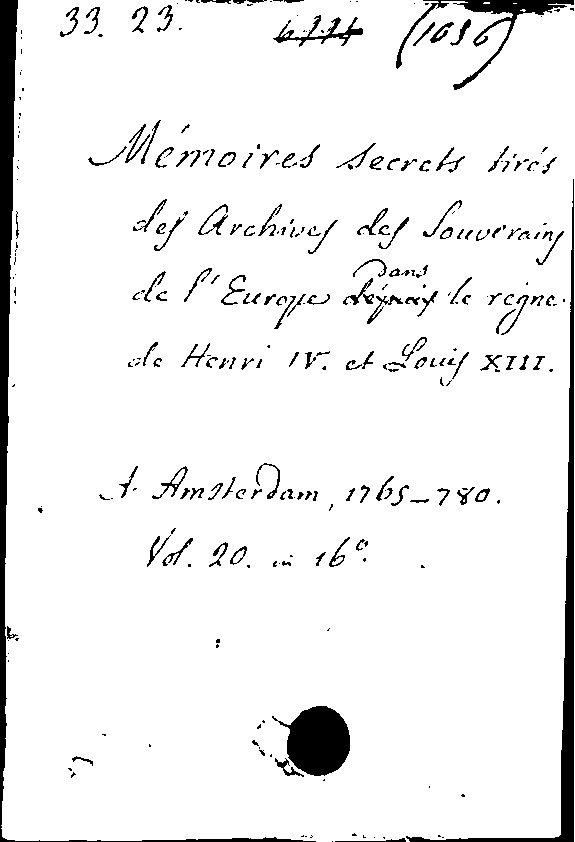 33. 23. (1056)
Mémoires secrets tirés
des Archives des Souverains
de l'Europe dans le régne
de Henri IV. et Louis XIII.
A Amsterdam, 1765_780.
Vol. 20. in 16º.